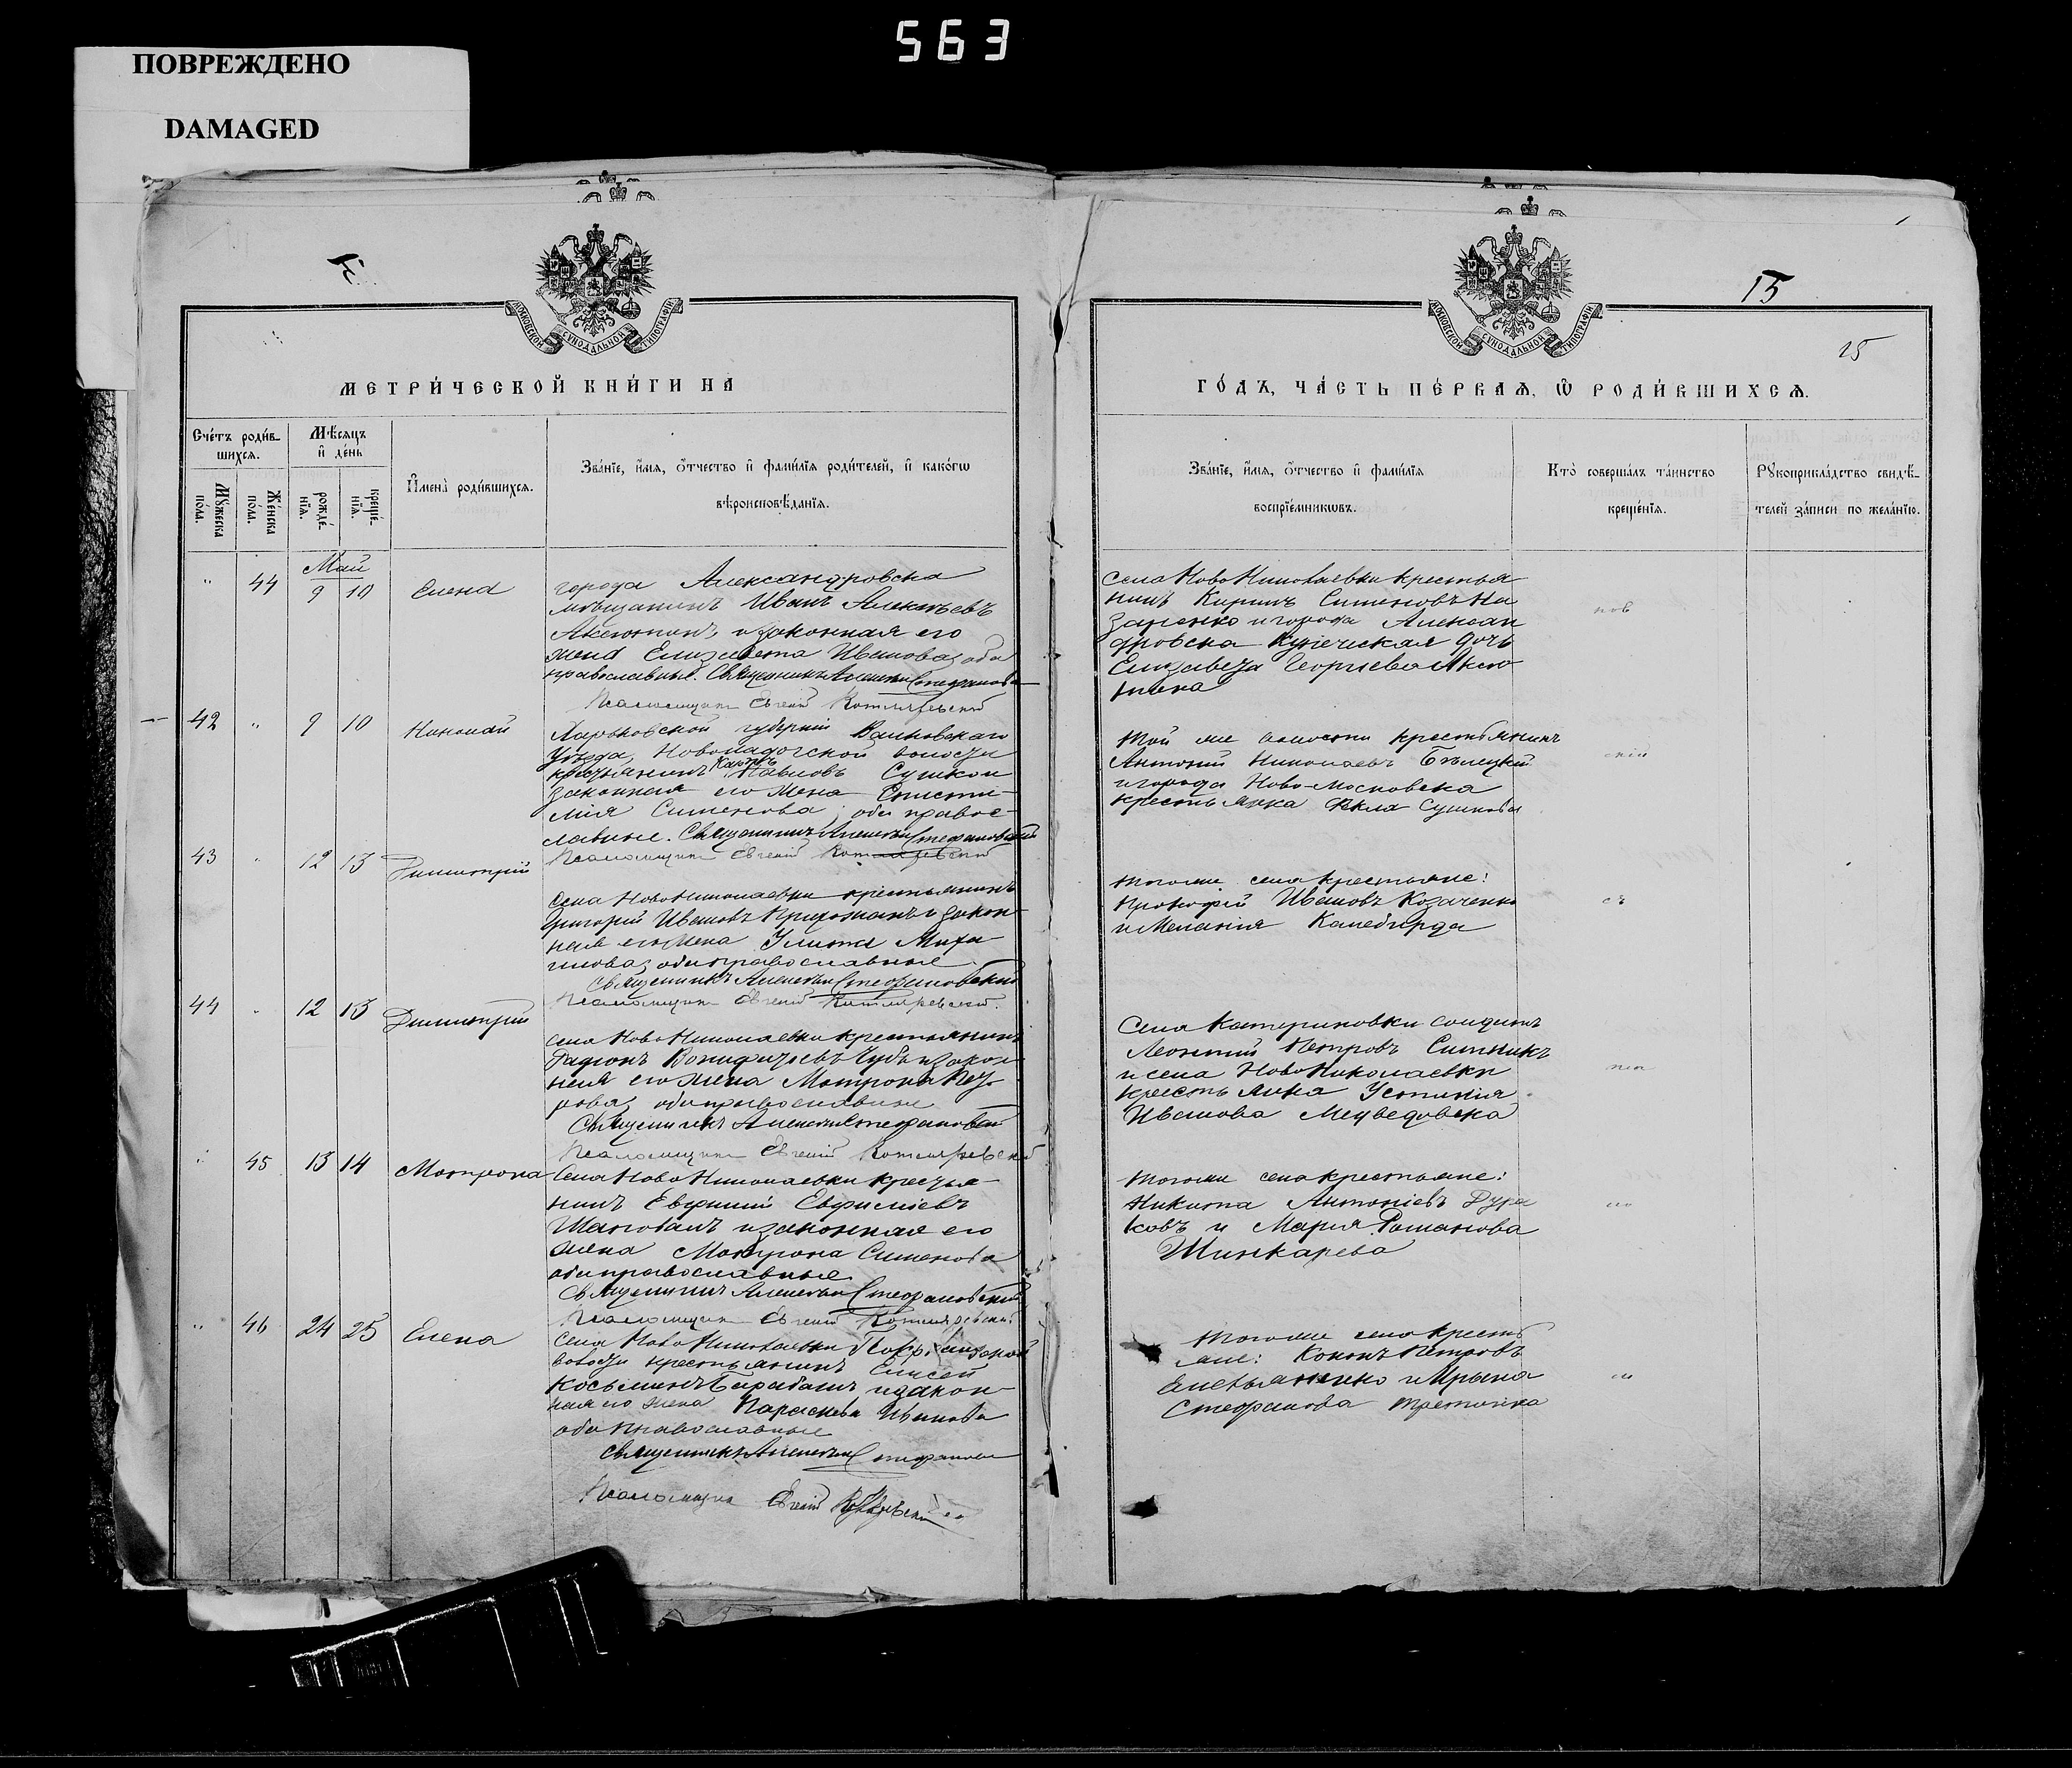 563
ПОВРЕЖДЕНО
DAMAGED
15
15
МОСКОВСКОЙ СѴНОДАЛЬНОЙ ТИПОГРАФІИ
МОСКОВСКОЙ СѴНОДАЛЬНОЙ ТИПОГРАФІИ
МЕТРИ́ЧЕСКОЙ КНИ́ГИ НА
ГО́ДЪ, ЧА́СТЬ ПЕ́РВАѦ, Ѽ РОДИ́ВШИХСѦ.
Сче́тъ роди́в-
шихсѧ.
Мꙋ́жеска по́ла.
Же́нска по́ла.
Мѣ́сѧцъ
и҆ де́нь
рожде́-нїѧ.
креще́-нїѧ.
И҆мена̀ роди́вшихсѧ.
Зва́нїе, и҆́мѧ, ѻ҆́тчество и҆ фами́лїѧ роди́телей, и҆ како́гѡ
вѣроисповѣ́данїѧ.
Зва́нїе, и҆́мѧ, ѻ҆́тчество и҆ фами́лїѧ
воспрїе́мникѡвъ.
Кто̀ соверша́лъ та́инство
креще́нїѧ.
Рꙋкоприкла́дство свидѣ́-
телей за́писи по жела́нїю.
Май
" 44 9 10 Елена
города Александровска
мѣщанинъ Иванъ Алексѣевъ
Аксютинъ и законная его
жена Елизавета Иванова, оба
православные. Священникъ Алексѣй Стефановскій
Псаломщикъ Евгеній Котляревскій
Села Ново Николаевки крестья
нинъ Кириллъ Сименовъ На
заренко и города Алексан
дровска купеческая дочь
Елизавета Георгіева Аксю
тина
нов
42 " 9 10 Николай
Харьковской губерніи Валковскаго
уѣзда, Новоладожской волости
крестьянинъ Карпъ Павловъ Сушко и
законная его жена Еписти-
мія Сименова, оба правос-
лавные. Священникъ Алексѣй Стефановскій
Псаломщикъ Евгеній Котляревскій
Той же волости крестьянинъ
Антоній Николаевъ Бѣлецкій
и города Ново-Московска
крестьянка Ѳекла Сушкова
скій
43 " 12 13 Димитрій
Села Ново Николаевки крестьянинъ
Григорій Ивановъ и закон-
ная его жена Улита Миха
илова, оба православные
Священникъ Алексѣй Стефановскій
Псаломщикъ Евгеній Котляревскій
того же села крестьяне:
Прокофій Ивановъ Козаченко
и Меланія
44 " 12 13 Димитрій
Села Ново Николаевки крестьянинъ
Радіонъ Вонифатіевъ Чубъ и закон-
ная его жена Матрона Пет-
рова, оба православные
Священникъ Алексѣй Стефановскій
Псаломщикъ Евгеній Котляревскій
Села Катериновки солдатъ
Леонтій Петровъ Ситникъ
и села Ново Николаевки
крестьянка Устинія
Иванова Медведовска
" 45 13 14 Матрона
Села Ново Николаевки крестья-
нинъ Евфимій Евфиміевъ
Шаповалъ и законная его
жена Матрона Сименова
оба православные
Священникъ Алексѣй Стефановскій
Псаломщикъ Евгеній Котляревскій
того же села крестьяне:
Никита Антоніевъ Дура
ковъ и Марія Романова
Шинкарева
" 46 24 25 Елена
Села Ново Николаевки
волости крестьянинъ Елисей
Косьминъ Барабашъ и закон-
ная его жена Параскева Иванова
оба православные
Священникъ Алексѣй Стефановскій
Псаломщикъ Евгеній Котляревскій
того же села кресть
яне: Кононъ Петровъ
Емельяненко и Ирина
Стефанова